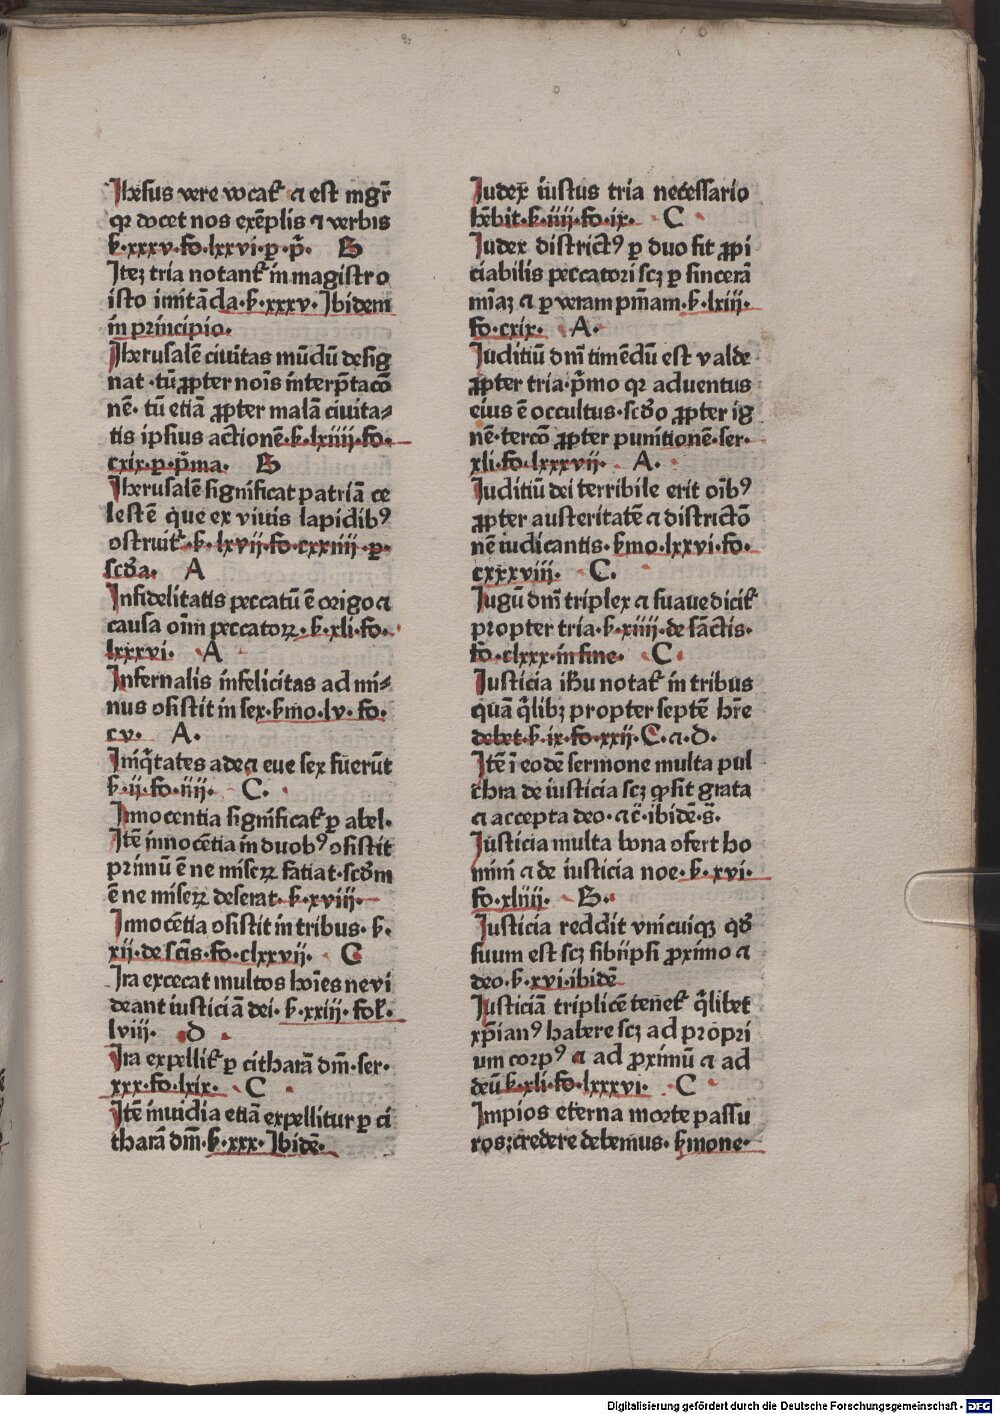 Jhesus vere vocat᷑ ⁊ est mgr̄
qr docet nos exēplis ⁊ verbis
ẜ·xxxv·fo·lxxvi·ꝑ·p̄· B
Itez tria notant᷑ in magistro
isto imitāda·ẜ·xxxv·Ibidem
in principio·
Jherusalē ciuitas mūdū desig
nat·tū ꝓpter nōis interp̄tacō
nē·tū etiā ꝓpter malā ciuita⸗
tis ipsius actionē·ẜ·lxiiii·fo·
cxix·ꝑ·p̄ma· B
Jherusalē significat patriā ce
lestē que ex viuis lapidibꝰ
ↄstruit᷑·ẜ·lxvij·fo·cxxiiij·ꝑ·
scd̄a· A
Infidelitatis peccatū ē origo ⁊
causa oīm peccatoꝝ·ẜ·xli·fo·
lxxxvi· A
Infernalis infelicitas ad mi⸗
nus ↄsistit in sex·ẜmo·lv·fo·
cv· A·
Iniq̇tates ade ⁊ eue sex fuerūt
ẜ·ii·fo·iiii· C·
Innocentia significat᷑ ꝑ abel·
Itē innocētia in duobꝰ ↄsistit
primū ē ne miseꝝ faciat·scd̄m
ē ne miseꝝ deserat·ẜ·xviii·
Innocētia ↄsistit in tribus·ẜ·
xij·de scīs·fo·clxxvij· C
Ira excecat multos hoīes ne vi
deant iusticiā dei·ẜ·xxiij·fol·
lviii· D
Ira expellit᷑ ꝑ citharā dm̄·ser·
xxx·fo·lxix· C
Itē inuidia etiā expellitur ꝑ ci
tharā dm̄·ẜ·xxx·Ibidē·
Iudex iustus tria necessario
hēbit·ẜ·iiij·fo·ix· C
Iudex districtꝰ ꝑ duo fit ꝓpi
ciabilis peccatori scz ꝑ sincerā
mīaz ⁊ ꝑ veram pn̄iam·ẜ·lxiii·
fo·cxix· A·
Iuditiū dn̄i timēdū est valde
ꝓpter tria·p̄mo qr aduentus
eius ē occultus·scd̄o ꝓpter ig
nē·tercō ꝓpter punitionē·ser·
xli·fo·lxxxvij· A·
Iuditiū dei terribile erit oībꝰ
ꝓpter austeritatē ⁊ districtō
nē iudicantis·ẜmo·lxxvi·fo·
cxxxviii· C·
Iugū dn̄i triplex ⁊ suaue dicit᷑
propter tria·ẜ·xiiii·de sāctis·
fo·clxxx·in fine· C
Iusticia ihū notat᷑ in tribus
quā q̄libz propter septē hr̄e
debet·ẜ·ix·fo·xxij·C·⁊·D·
Itē ī eodē sermone multa pul
chra de iusticia scz ꝙ sit grata
⁊ accepta deo·⁊ c̄·ibidē·s̄·
Iusticia multa bona ofert ho
mini ⁊ de iusticia noe·ẜ·xvi·
fo·xliiii· B·
Iusticia reddit vnicuiqꝫ qd̄
suum est scz sibiipsi ꝓximo ⁊
deo·ẜ·xvi·ibidē
Iusticiā triplicē tenet᷑ q̄libet
xp̄ianꝰ habere scz ad propri
um corpꝰ ⁊ ad ꝓximū ⁊ ad
deū ẜ·xli·fo·lxxxvi· C
Impios eterna morte passu
ros:credere debemus·ẜmone·
Digitalisierung gefördert durch die Deutsche Forschungsgemeinschaft - DFG